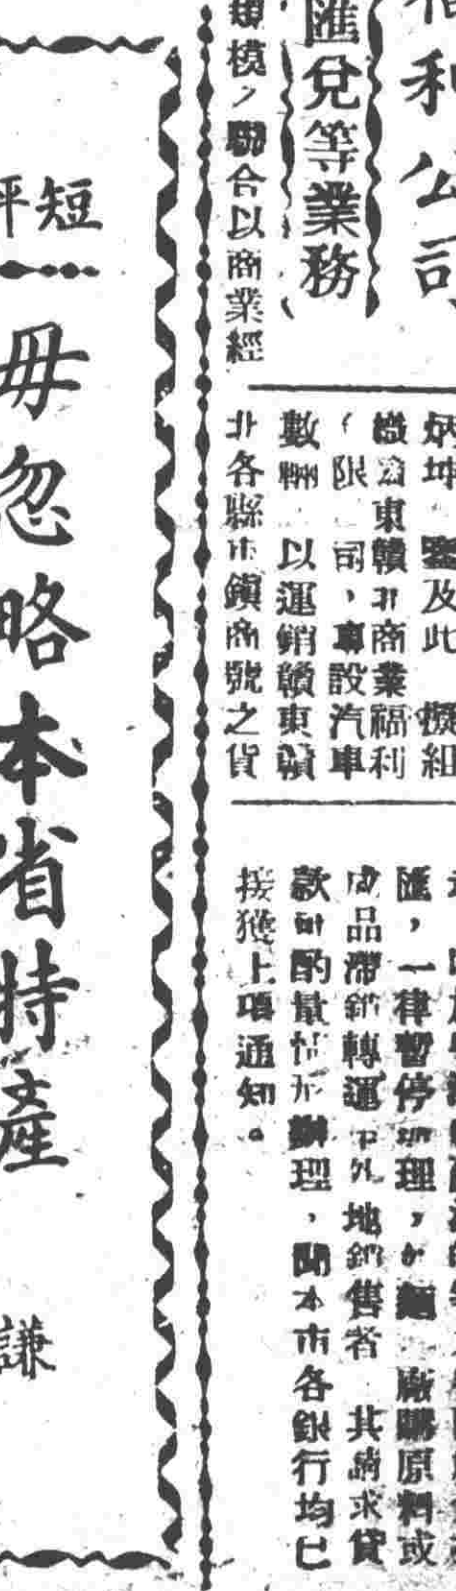 利公司
匯兌等業務
模，聯合以商業經
炳坤 鑒及此 擬組
織 東贛北商業福利
限 司，專設汽車
數輛 以運銷贛東贛
北各縣市鎮商號之貨
匯，一律暫停辦理，廠購原料或
成品滯銷轉運 外地銷售者 其請求貸
款 酌量情形辦理，聞本市各銀行均已
接獲上項通知。
短評
毋忽略本省特產
謙